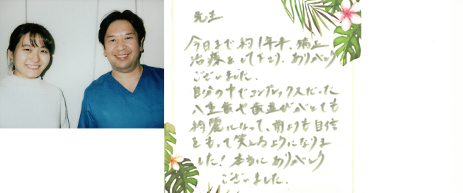 先生
今日まで約1年半、矯正
治療をして下さり、ありがとう
ございました。
自分の中でコンプレックスだった
八重歯や歯並びがとても
綺麗になって、前よりも自信
をもって笑えるようになりま
した！本当にありがとう
ございました。